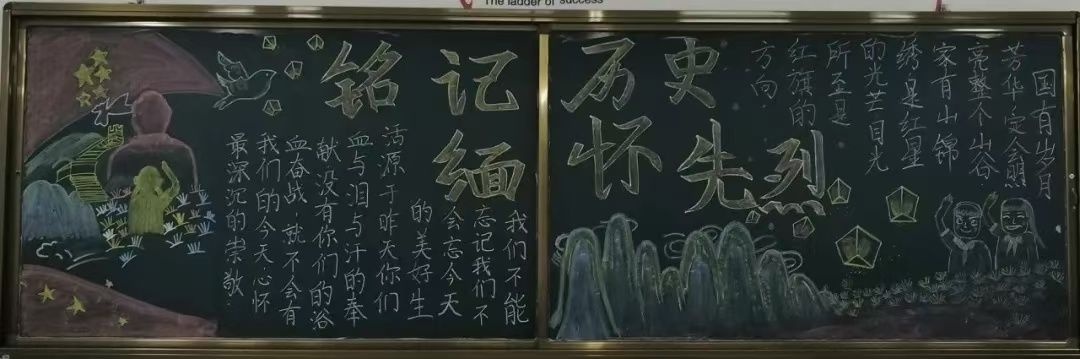 The ladder of success
铭记历史
缅怀先烈
我们不能
忘记我们不
会忘今天
的美好生
活源于昨天你们
血与泪与汗的奉
献没有你们的浴
血奋战.就不会有
我们的今天心怀
最深沉的崇敬
国有岁月
芳华.定会照
亮整个山谷
家有山锦
绣是红星
的光芒目光
所至是
红旗的
方向.